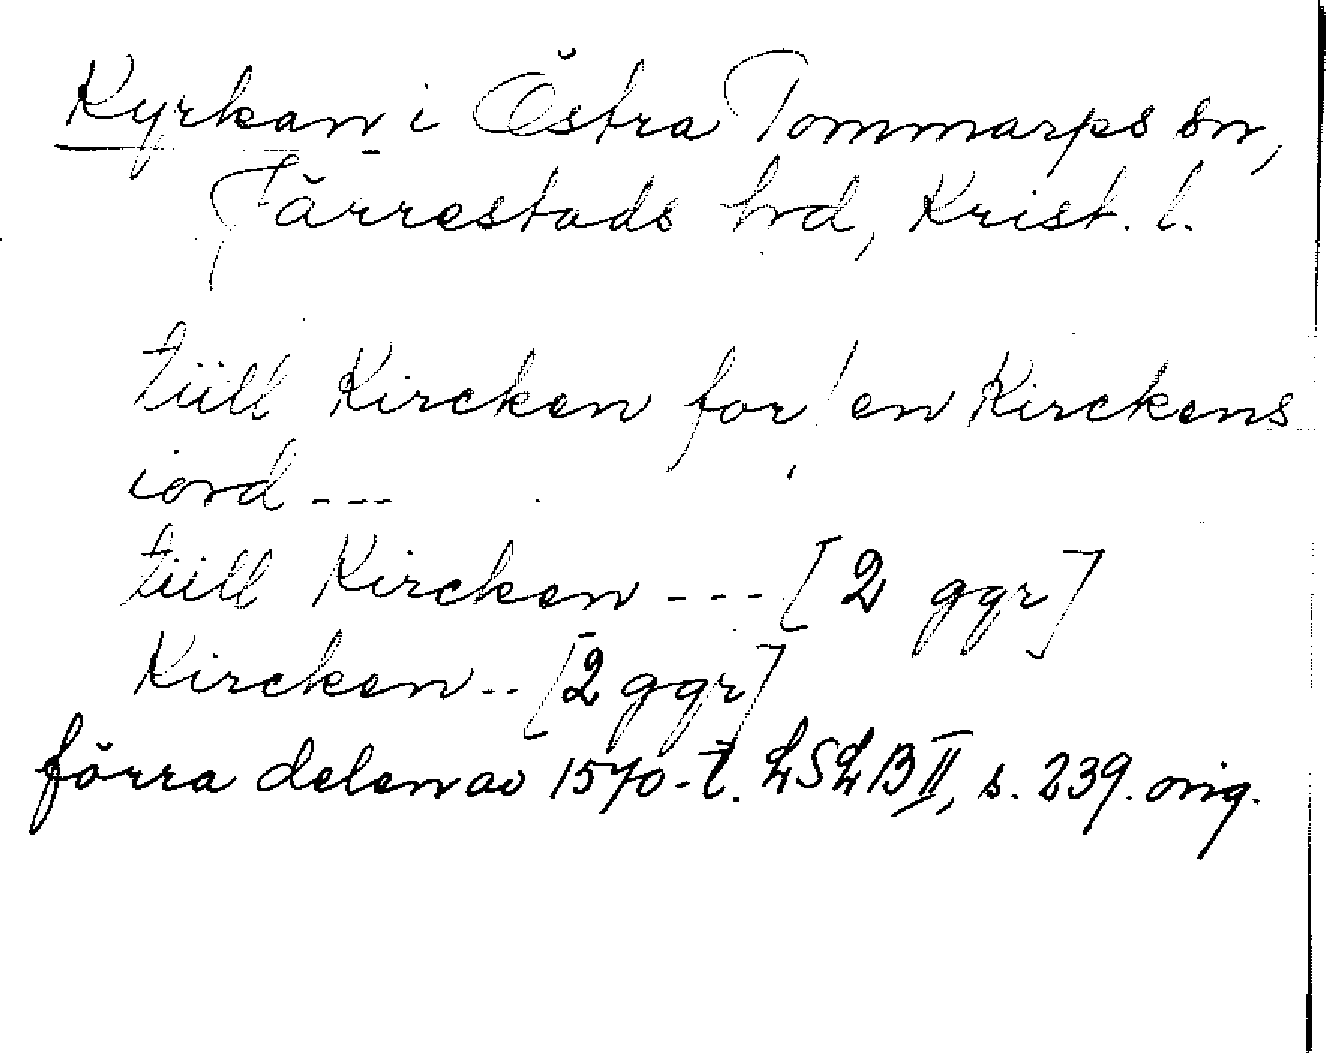 Kyrkan i Östra Tommarps sn,
Järrestads hrd, Krist. l.
tiill Kircken for! en Kirckens
iord ---
tiill Kircken --- [2 ggr]
Kircken -- [2 ggr]
förra delen av 1570-t. LSLB II, s. 239. orig.